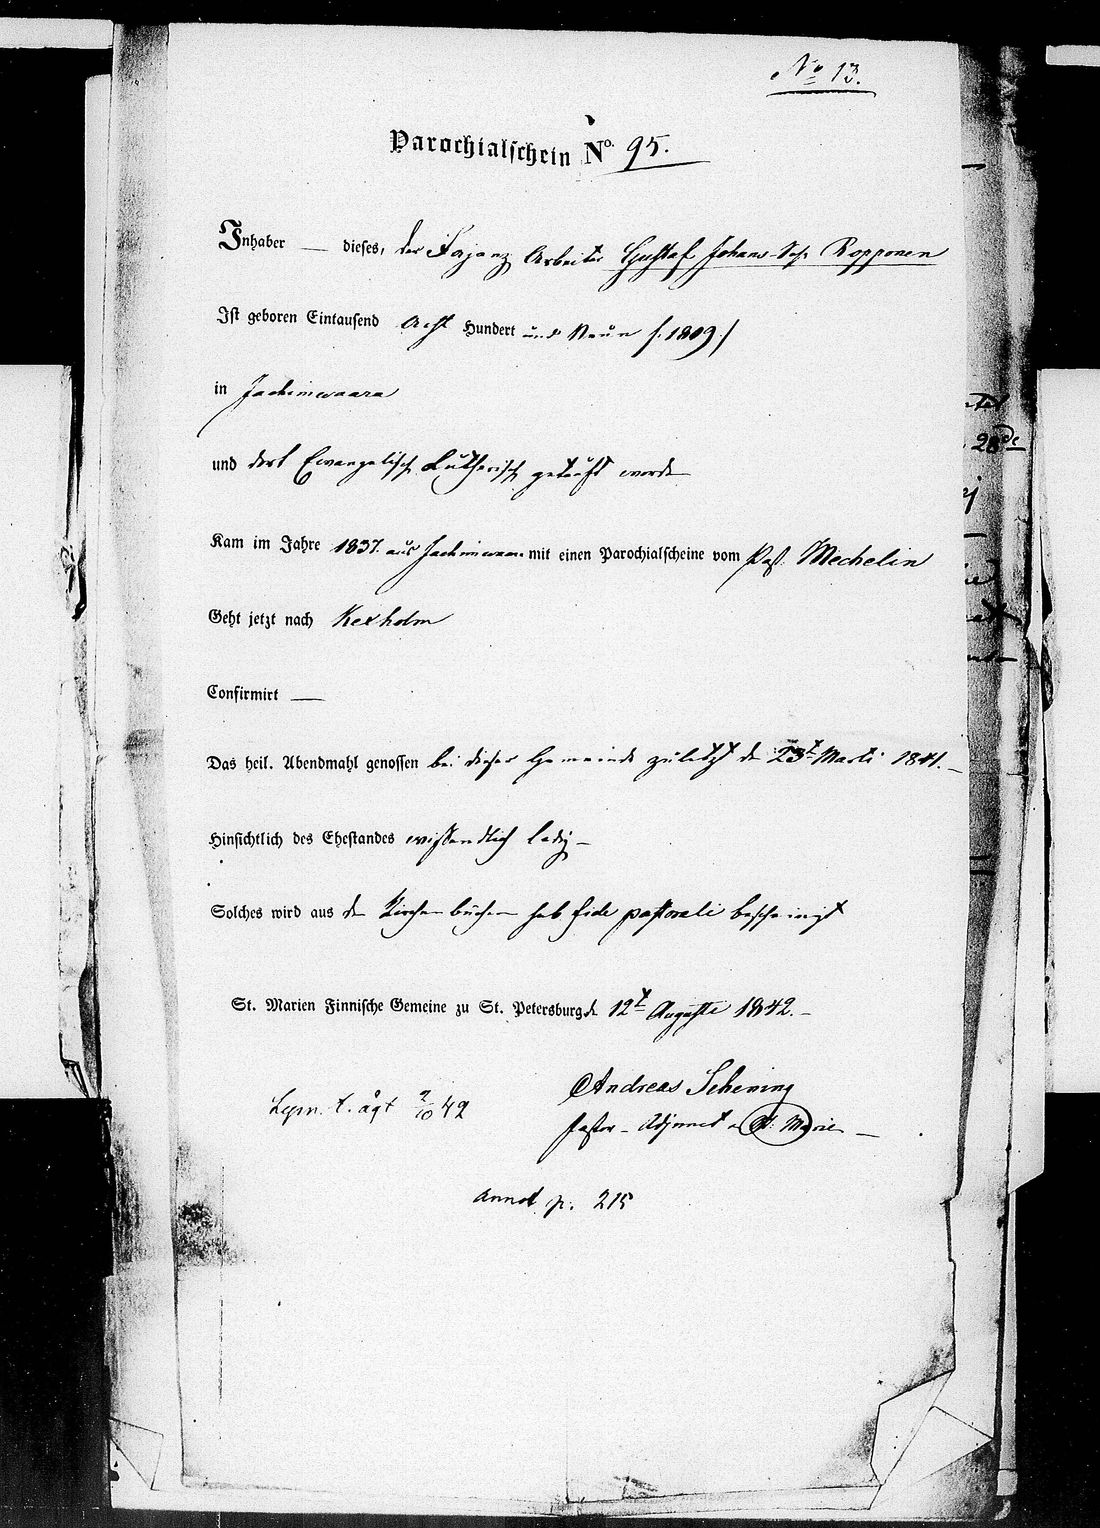 No 13.
Parochialschein No. 95.
Inhaber — dieses, der Fajanz Arbeiter Gustaf Johans Sohn Ropponen
Ist geboren Eintausend Acht Hundert und Neun /: 1809 :/
in Jachimwaara
und dort Evangelisch Lutherisch getauft worden
Kam im Jahre 1837. aus Jachimwaara mit einen Parochialscheine vom Past. Mechelin
Geht jetzt nach Kexholm
Confirmirt —
Das heil. Abendmahl genossen bei dieser Gemeinde zuletzt d. 23t Marti 1841. —
Hinsichtlich des Ehestandes wissendlich ledig —
Solches wird aus den Kirchenbüchern sub fide pastorali bescheinigt
St. Marien Finnische Gemeine zu St. Petersburg d. 12t Auguste 1842. —
Andreas Schening
Pastor-Adjunct St. Marien —
t. ågt 2/10 42
annot p. 215
28de